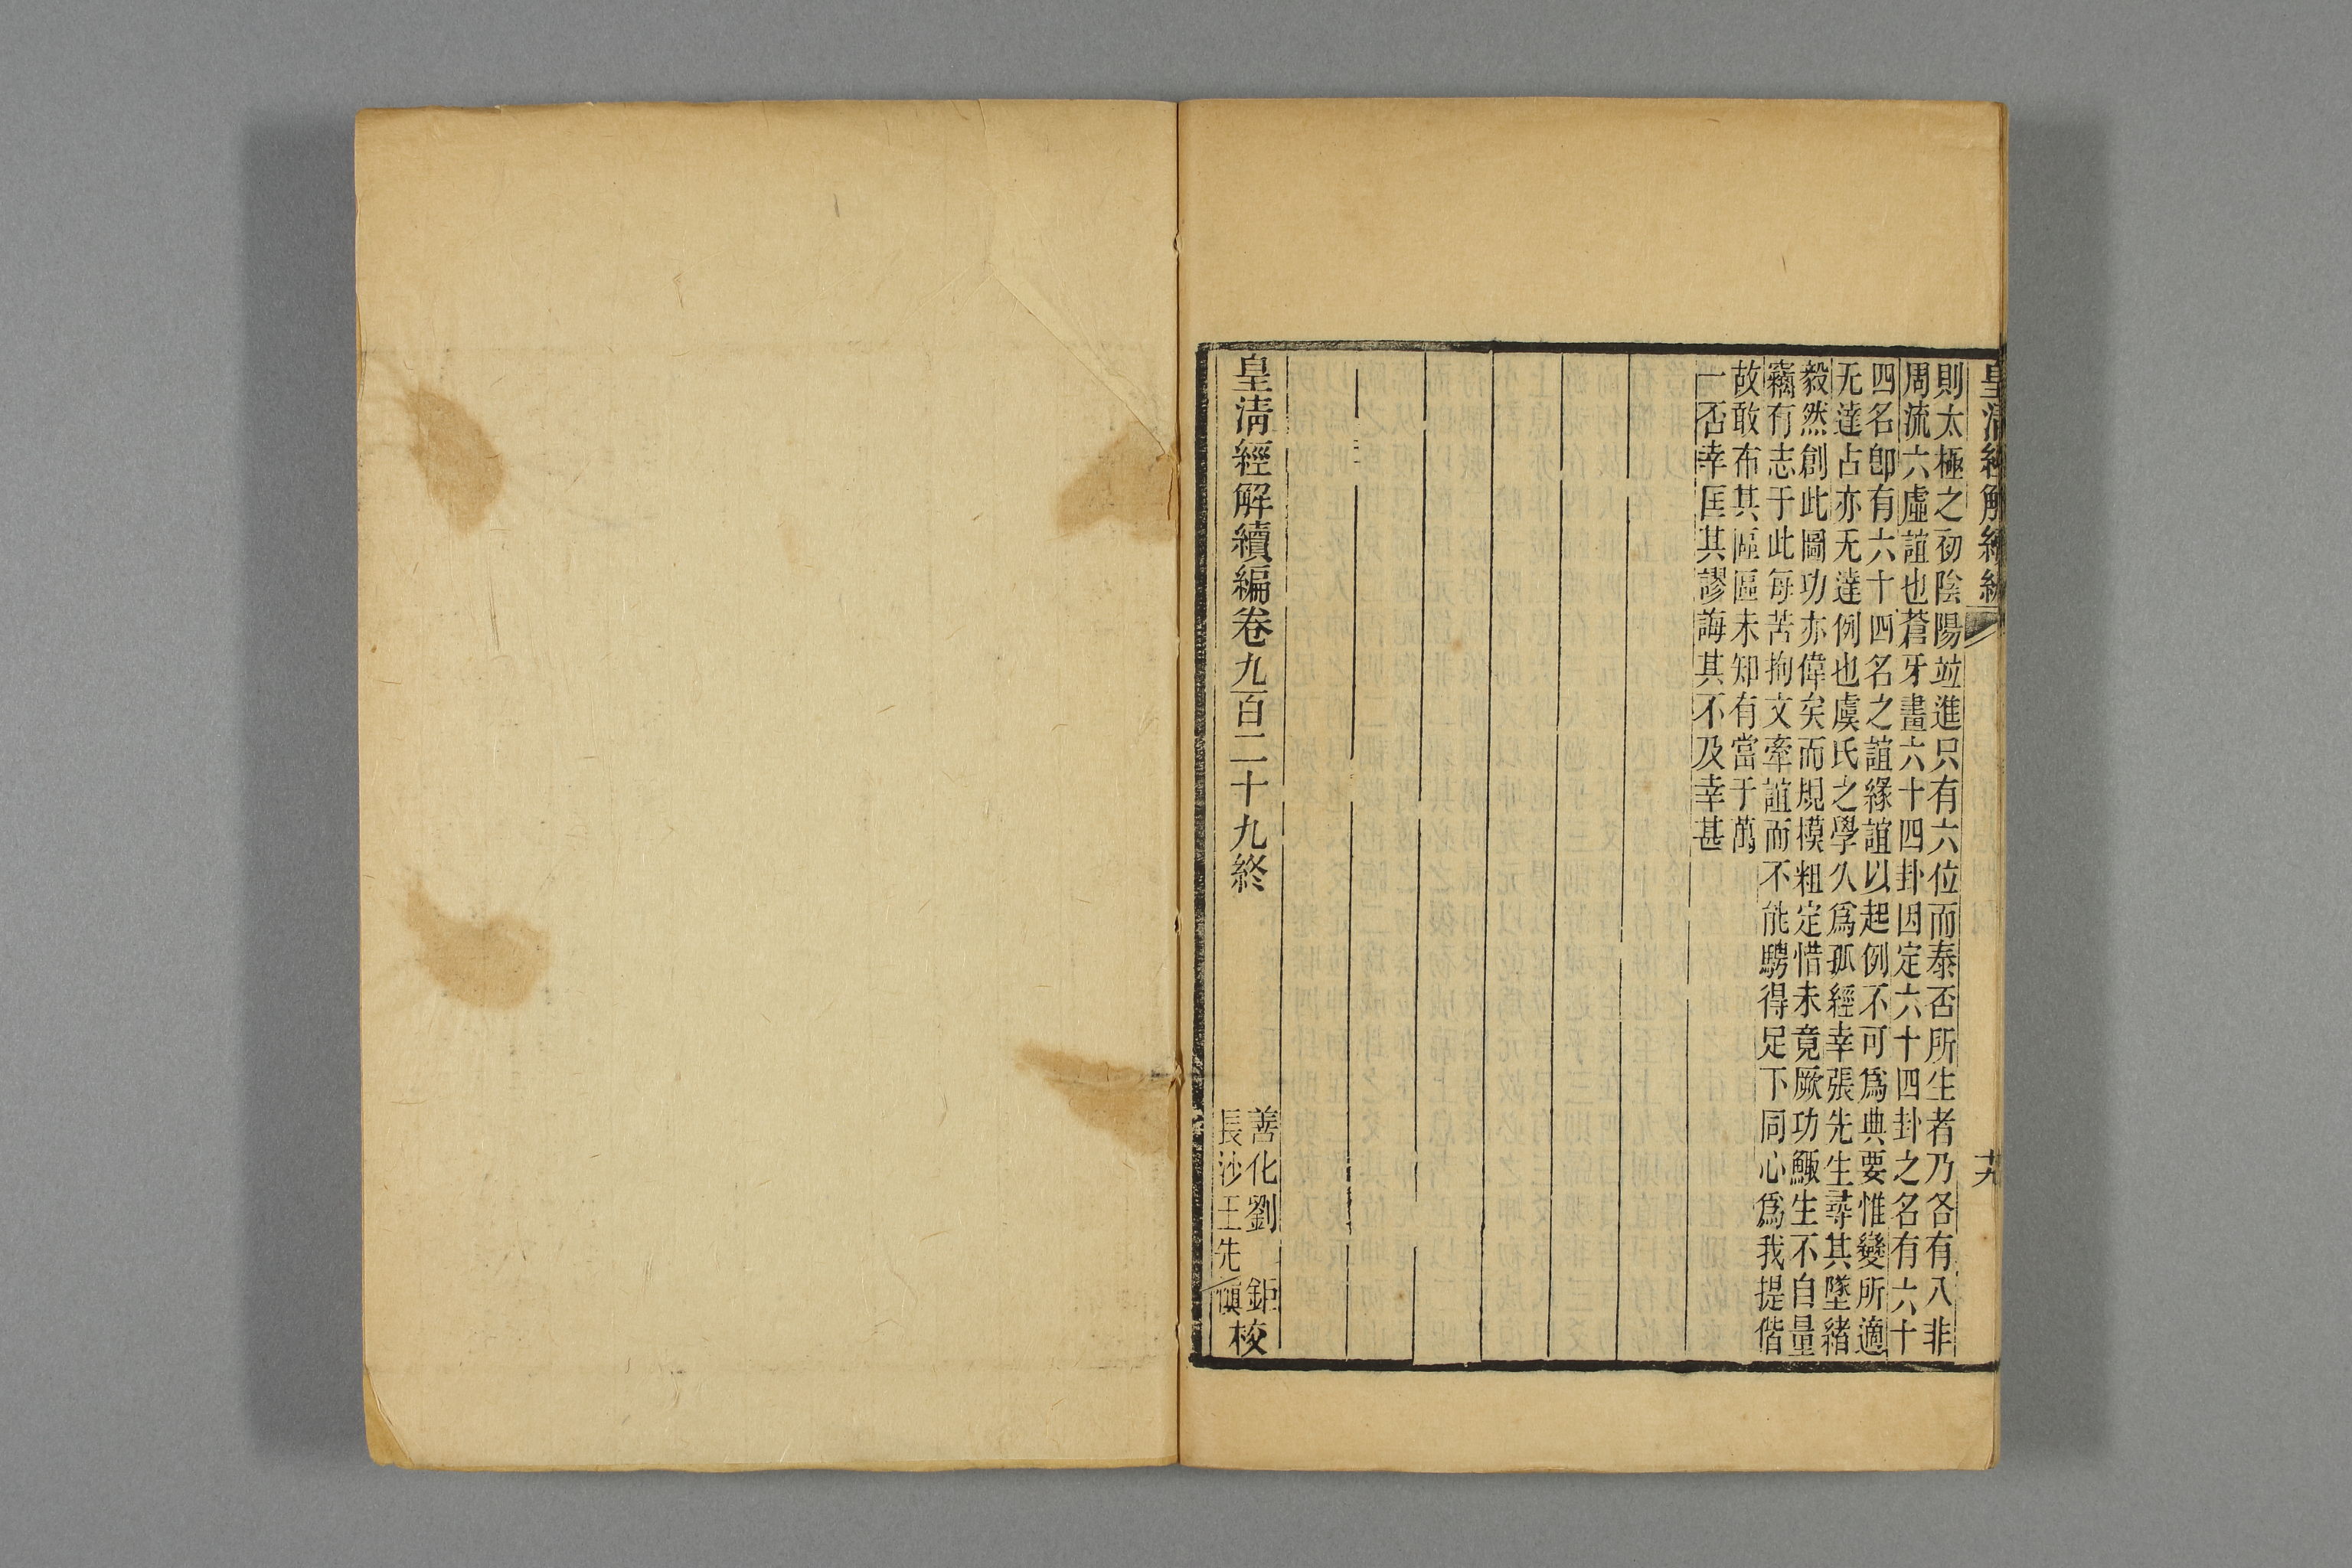 皇清經解續編
十九
則太極之初陰陽竝進只有六位而泰否所生者乃各有八非
周流六虛誼也蒼牙畫六十四卦因定六十四卦之名有六十
四名卽有六十四名之誼緣誼以起例不可爲典要惟變所適
无達占亦无達例也虞氏之學久爲孤經幸張先生尋其墜緒
毅然創此圖功亦偉矣而規模粗定惜未竟厥功鯫生不自量
竊有志于此每苦拘文牽誼而不能騁得足下同心爲我提偕
故敢布其區區未知有當于萬
一否幸匡其謬誨其不及幸甚
皇淸經解續編卷九百二十九終
善化劉鉅
長沙王先愼校